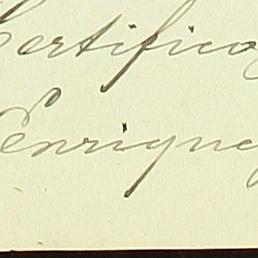 Certifico
Enrique